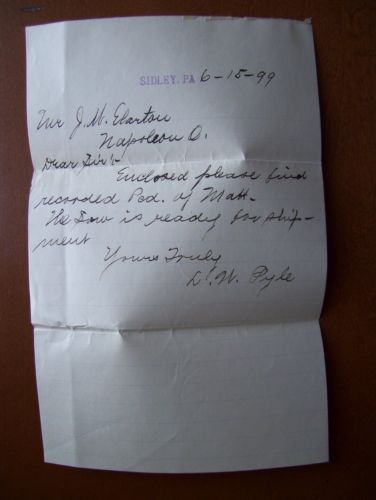 SIDLEY, PA 6-15-99
Mr J. W. Elarton
Napoleon O.
Dear Sir:-
Enclosed please find
recorded Ped. of Matt.
The Sow is ready for ship-
ment
Yours Truly
L. W. Pyle